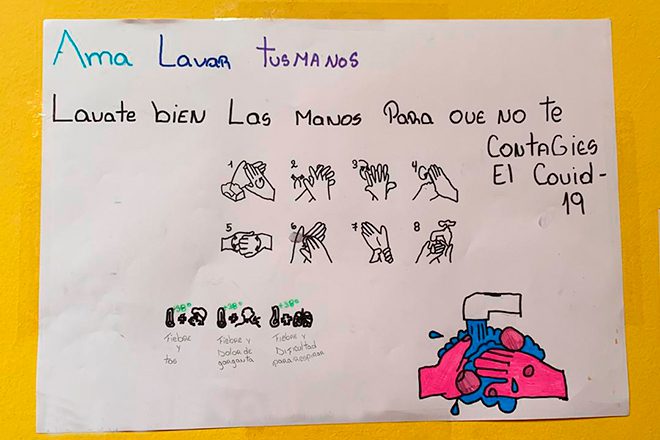 Ama Lavar tus manos
Lavate bien Las manos Para que no te
contagies
El Covid-
19
1 2 3 4
5 6 7 8
+38° +38° +38°
Fiebre y tos
Fiebre y Dolor de garganta
Fiebre y Dificultad para respirar